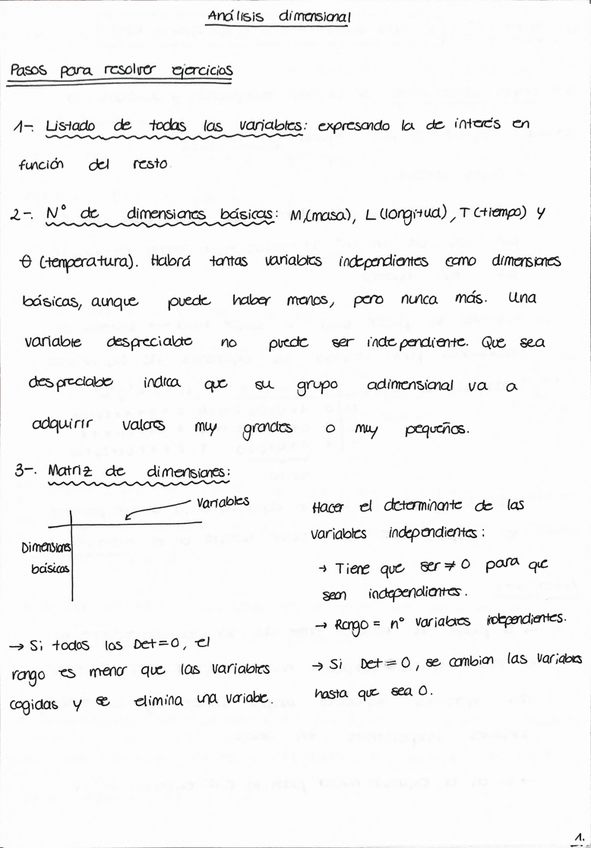 Análisis dimensional
Pasos para resolver ejercicios
1-. Listado de todas las variables: expresando la de interés en
función del resto.
2-. Nº de dimensiones básicas: M(masa), L(longitud), T(tiempo) y
θ (temperatura). Habrá tantas variables independientes como dimensiones
básicas, aunque puede haber menos, pero nunca más. Una
variable despreciable no puede ser independiente. Que sea
despreciable indica que su grupo adimensional va a
adquirir valores muy grandes o muy pequeños.
3-. Matriz de dimensiones:
Variables
Dimensiones
básicas
→ Si todos los Det=0, el
rango es menor que las variables
cogidas y se elimina una variable.
Hacer el determinante de las
variables independientes:
→ Tiene que ser ≠ 0 para que
sean independientes.
→ Rango = nº variables independientes.
→ Si Det=0, se cambian las variables
hasta que sea 0.
1.